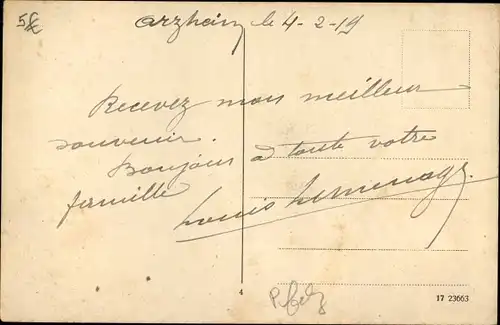 5€
Arzheim le 4-2-19
Recevez mon meilleur
souvenir.
Bonjour à toute votre
famille
Louis Lemenager
Pfalz
4
17 23663